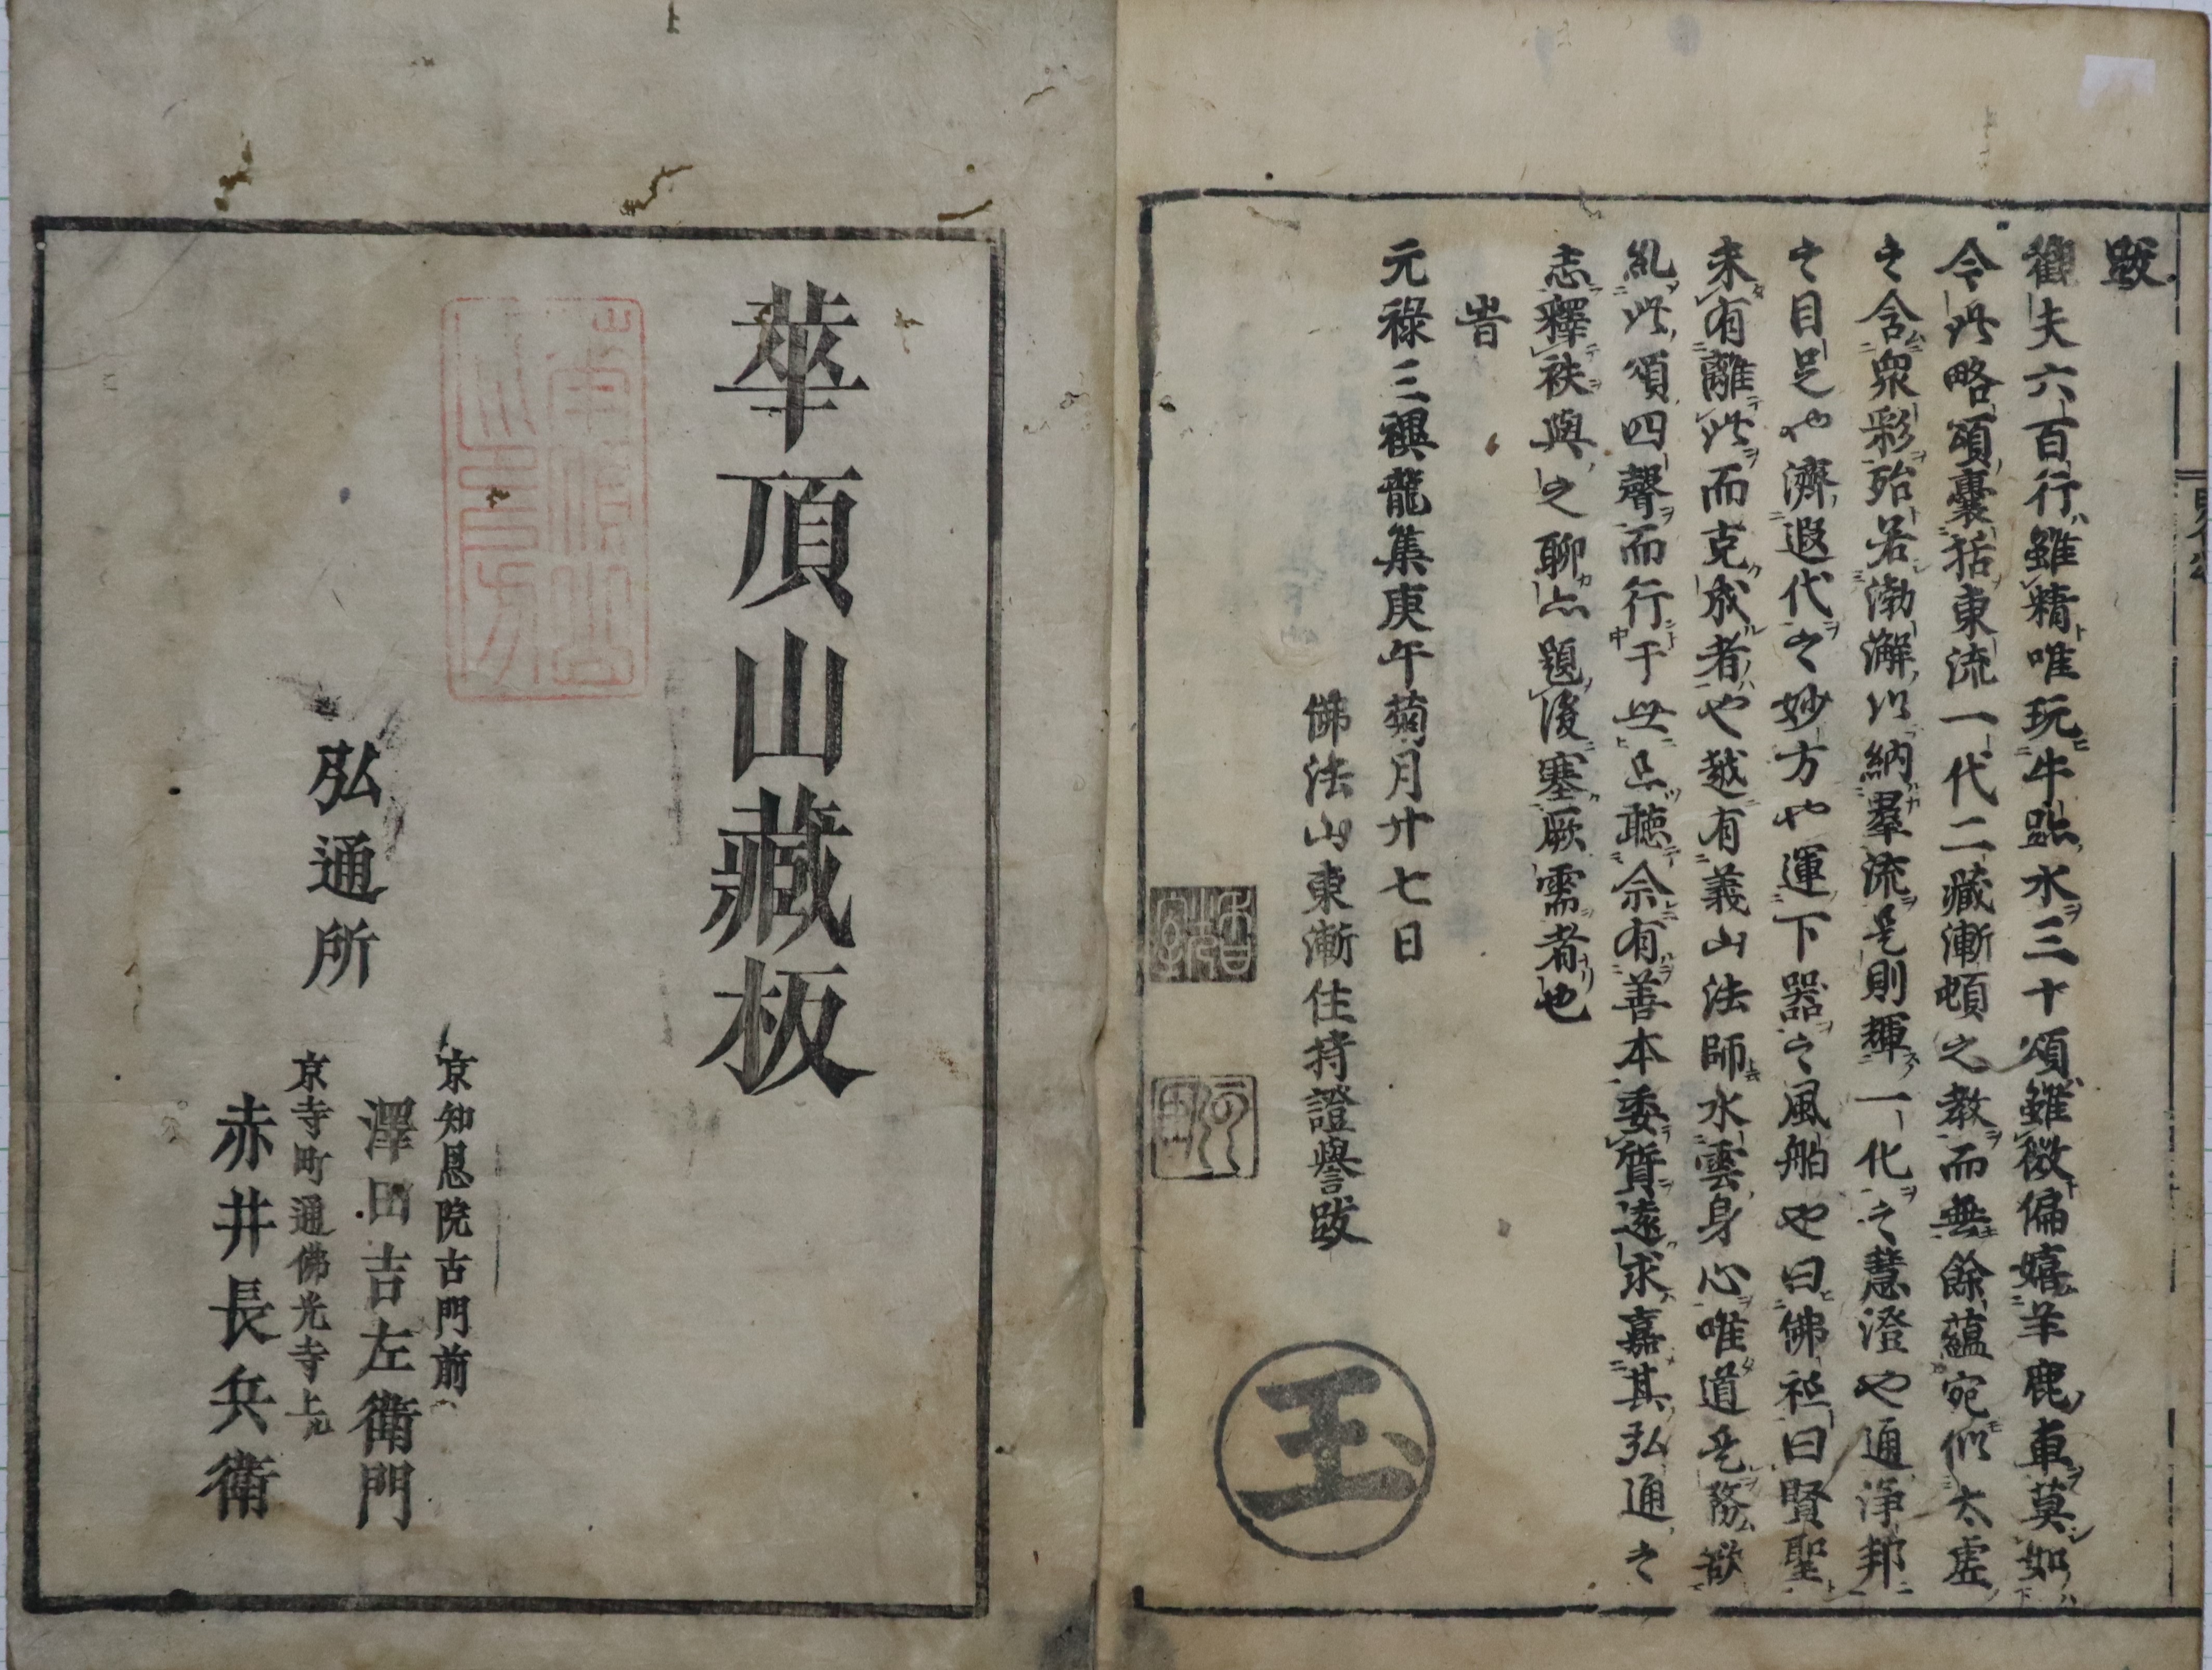 跋
観夫六百行雖精唯玩牛跡水三十頌雖微偏嬉羊鹿車莫如
今此略頌囊括東流一代二藏漸頓之教而無餘蘊宛似太虛
之含衆彩殆若渤澥以納羣流是則輝一化之慧澄也通淨邦
之目足也濟遐代之妙方也運下器之風船也曰佛祖曰賢聖
未有離此而克成者也越有義山法師水雲身心唯道是務欲
糺此頌四聲而行于世以聴余有善本委質遠求嘉其弘通之
志釋袟與之聊亦題後塞厥需者也
旹
元祿三禩龍集庚午菊月廿七日
佛法山東漸住持證譽跋
玉
華頂山藏板
弘通所
京知恩院古門前
澤田吉左衛門
京寺町通佛光寺上ル
赤井長兵衛